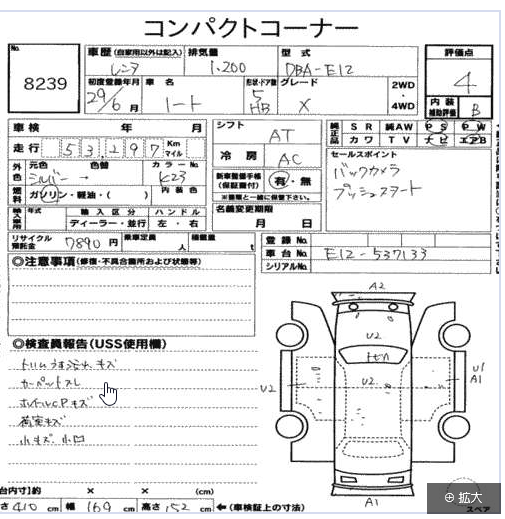 コンパクトコーナー
No. 8239
車歴 (自家用以外は記入) レンタ
排気量 1.200
型式 DBA-E12
評価点 4
初度登録年月 29/6 月
車名 ノート
形状・ドア数 5 HB
グレード X
2WD・4WD
内装補助評価 B
車検 年 月
シフト AT
純正品 SR 純AW PS PW
カワ TV ナビ エアB
走行 53,297 Km マイル
冷房 AC
セールスポイント
バックカメラ
プッシュスタート
外色 元色 シルバー 色替 → カラーNo. K23
燃料 ガソリン・軽油・( ) 内装色
新車整備手帳 (保証書付) 有・無
※書類と一緒に保管下さい。
輸入車用 年式 輸入区分 ディーラー・並行 ハンドル 左・右
名義変更期限 月 日
リサイクル預託金 7890円 乗車定員 人 積載量 t
登録No.
車台No. E12-537133
シリアルNo.
◎注意事項 (修復・不具合箇所および状態等)
◎検査員報告(USS使用欄)
カーペットスレ
ハンドルC.Pキズ
荷室キズ
小キズ 小凹
A2
U2
U2 U2 U1
A1
A1
スペア
台内寸)約 × × (cm)
さ 410 cm 幅 169 cm 高さ 152 cm ←(車検証上の寸法)
⊕ 拡大